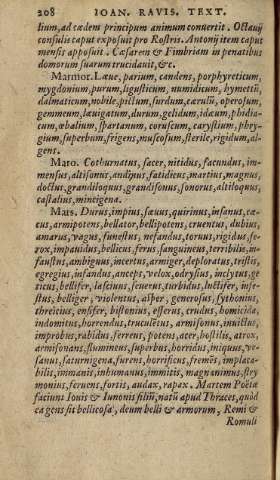 208 IOAN. RAVIS. TEXT.
lium, ad cædem principum animum conuertit. Octauij
consulis caput exposuit pro Rostris. Antonij item caput
mensis apposuit. Cæsarem & Fimbriam in penatibus
domorum suarum trucidauit, &c.
Marmor. Læue, parium, candens, porphyreticum,
mygdonium, purum, ligusticum, numidicum, hymettiū,
dalmaticum, nobile, pictum, surdum, cærulū, operosum,
gemmeum, læuigatum, durum, gelidum, idæum, phidia-
cum, œbalium, spartanum, coruscum, carystium, phry-
gium, superbum, frigens, muscosum, sterile, rigidum, al-
gens.
Maro. Cothurnatus, sacer, nitidus, facundus, im-
mensus, altisonus, andinus, fatidicus, martius, magnus,
doctus, grandiloquus, grandisonus, sonorus, altiloquus,
castalius, mincigena.
Mars. Durus, impius, sæuus, quirinus, insanus, cæ-
cus, armipotens, bellator, bellipotens, cruentus, dubius,
amarus, vagus, funestus, nefandus, toruus, rigidus, fe-
rox, impauidus, bellicus, ferus, sanguineus, terribilis, in-
faustus, ambiguus, incertus, armiger, deploratus, tristis,
egregius, infandus, anceps, velox, odrysius, inclytus, ge-
ticus, bellifer, lasciuus, seuerus, turbidus, luctifer, infe-
stus, belliger, violentus, asper, generosus, sythonius,
threicius, ensifer, bistonius, efferus, crudus, homicida,
indomitus, horrendus, truculētus, armisonus, inuictus,
improbus, rabidus, ferrens, potens, acer, hostilis, atrox,
armisonans, flammeus, superbus, horridus, iniquus, ve-
sanus, saturnigena, furens, horrificus, fremēs, implaca-
bilis, immanis, inhumanus, immitis, magnanimus, stry
monius, feruens, fortis, audax, rapax. Martem Poëtæ
faciunt Iouis & Iunonis filiū, natū apud Thraces, quòd
ea gens sit bellicosa, deum belli & armorum, Remi &
Romuli